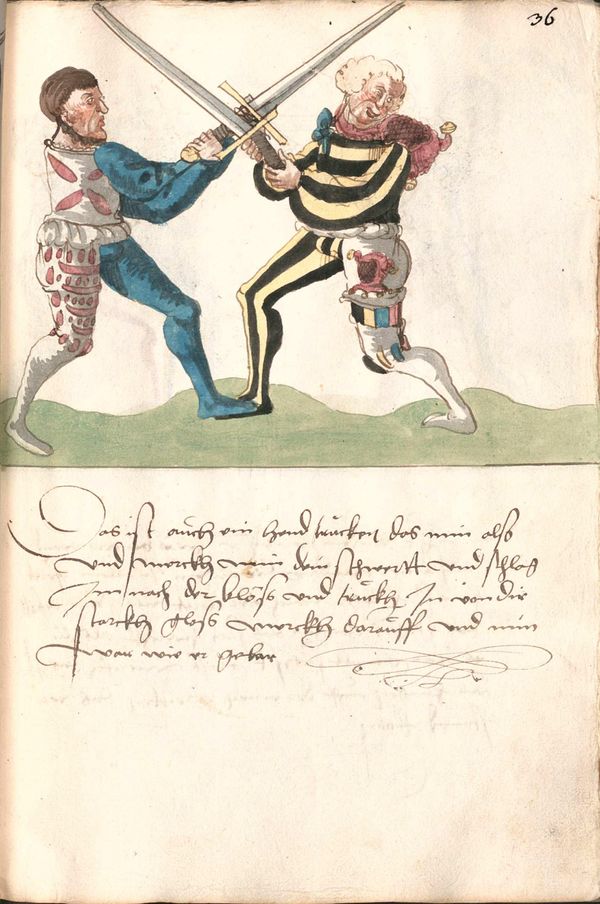 36
Das ist auch ein hend trücken das nim also
und merckh nim dein schwertt und schlag
Im nach der blöss und trückh In von dir
starckh gloss merckh darauff und nim
war wie er gebar